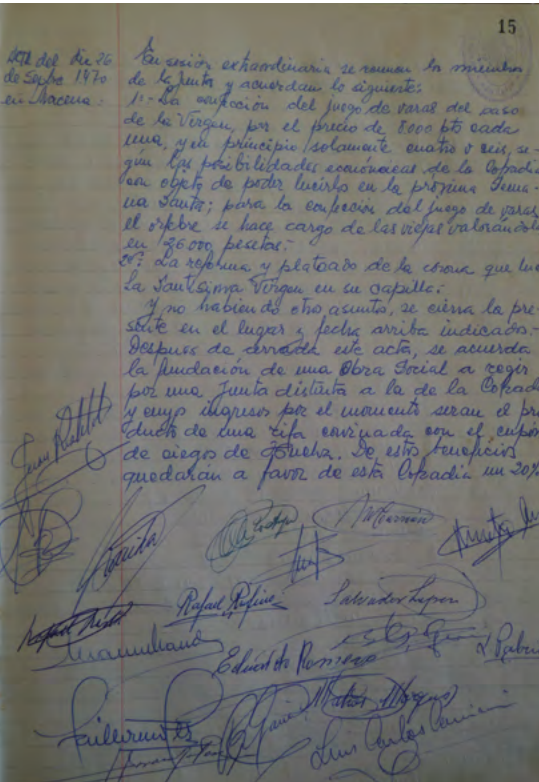 15
Acta del día 26
de Sepbre 1970
en Aracena:
En sesión extraordinaria se reunen los miembros
de la Junta y acuerdam lo siguiente:
1:- La confección del juego de varas del paso
de la Virgen, por el precio de 8000 pts cada
una, y en principio solamente cuatro o seis, se-
gún las posibilidades económicas de la Cofradia
con objeto de poder lucirlo en la próxima Sema-
na Santa; para la confección del juego de varas,
el orfebre se hace cargo de las viejas valorándolas
en 26000 pesetas.-
2º: La reforma y plateado de la corona que luce
La Santísima Virgen en su capilla:
Y no habiendo otro asunto, se cierra la pre-
sente en el lugar y fecha arriba indicados.-
Despues de cerrada este acta, se acuerda
la fundación de una Obra Social a regir
por una Junta distinta a la de la Cofradia
y cuyos ingresos por el momento seran el pro
ducto de una rifa convinada con el cupon
de ciegos de Huelva. De estos beneficios
quedarán a favor de esta Cofradia un 20%
Rafael Rufino
Salvador Lopez
Maximiliano
Eduardo Romero
Guillermo
Luis Carlos